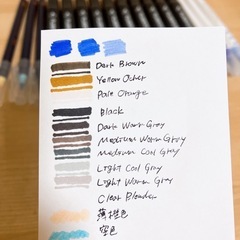 Dark Brown
Yellow Ocher
Pale Orange
Black
Dark Warm Gray
Medium Warm Gray
Medium Cool Gray
Light Cool Gray
Light Warm Gray
Clear Blender
薄橙色
空色